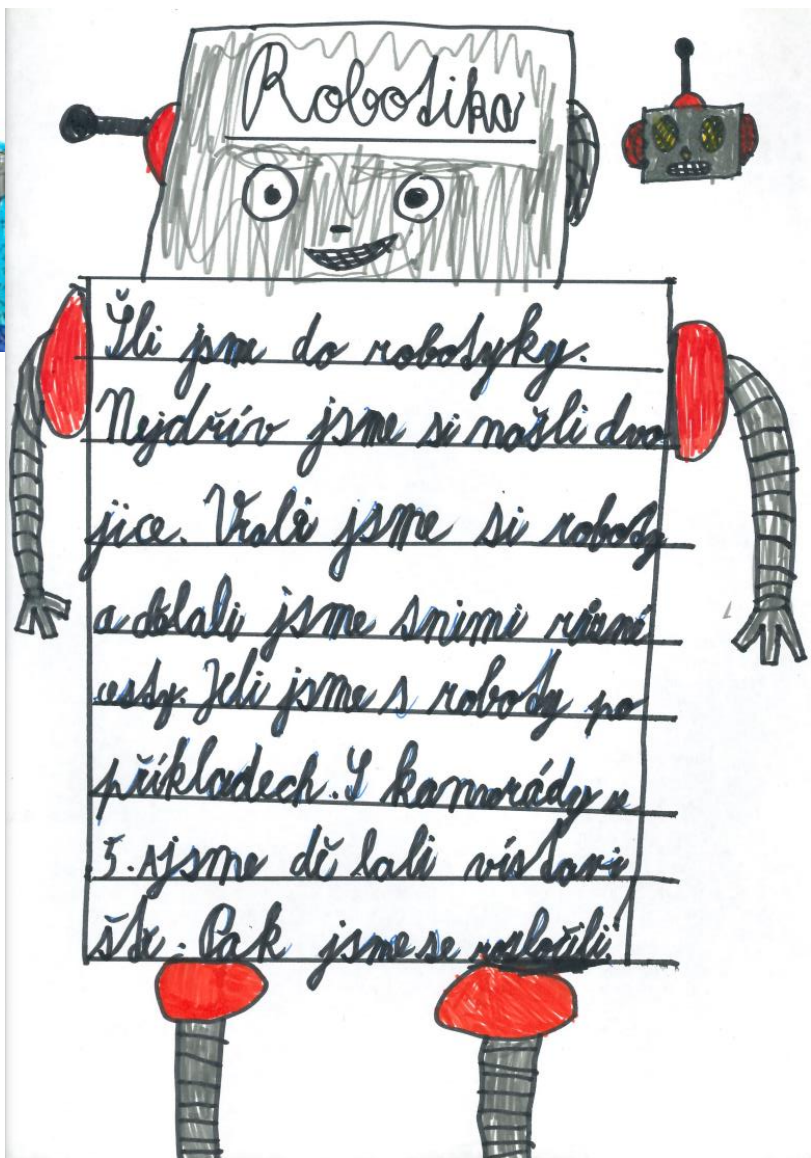 Robotika
Šli jsme do robotyky.
Nejdřív jsme si našli dvo
jice. Vzali jsme si roboty
a dělali jsme snimi různé
cesty. Jeli jsme s roboty po
příkladech. S kamarády z
5. jsme dě lali vístavi
ště. Pak jsme se rozložili